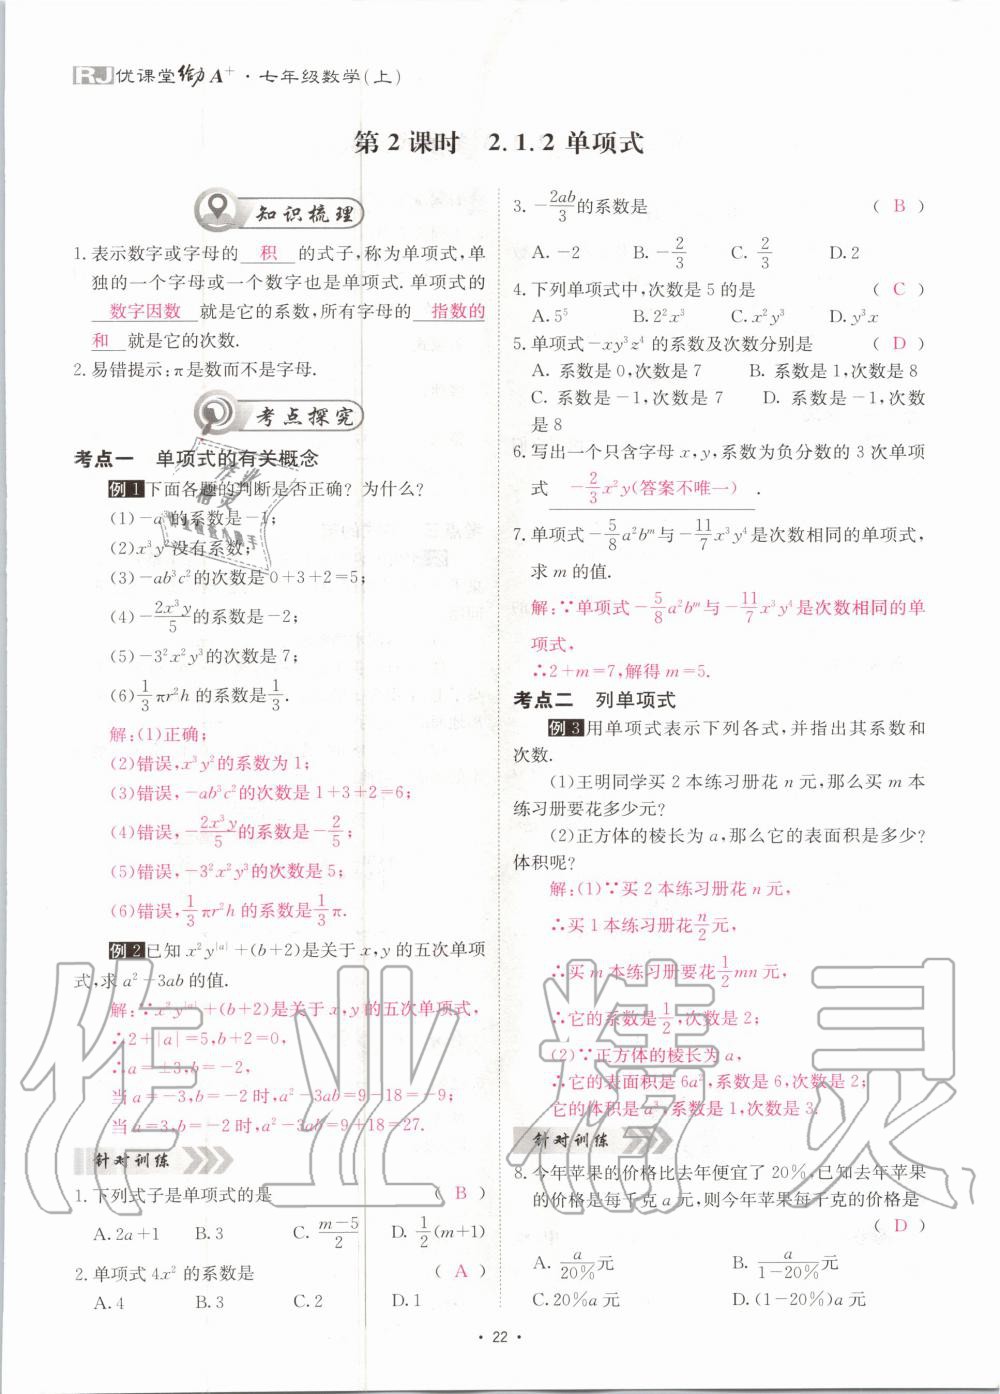 RJ 优课堂给力A⁺·七年级数学(上)
第2课时 2.1.2 单项式
知识梳理
1.表示数字或字母的 积 的式子,称为单项式,单
独的一个字母或一个数字也是单项式.单项式的
数字因数 就是它的系数,所有字母的 指数的
和 就是它的次数.
2.易错提示:π是数而不是字母.
考点探究
考点一 单项式的有关概念
例1 下面各题的判断是否正确?为什么?
(1)-a³的系数是-1;
(2)x³y²没有系数;
(3)-ab³c²的次数是0+3+2=5;
(4)-2x³y/5的系数是-2;
(5)-3²x²y³的次数是7;
(6)1/3πr²h的系数是1/3.
解:(1)正确;
(2)错误,x³y²的系数为1;
(3)错误,-ab³c²的次数是1+3+2=6;
(4)错误,-2x³y/5的系数是-2/5;
(5)错误,-3²x²y³的次数是5;
(6)错误,1/3πr²h的系数是1/3π.
例2 已知x²y^|a|+(b+2)是关于x,y的五次单项
式,求a²-3ab的值.
解:∵x²y^|a|+(b+2)是关于x,y的五次单项式,
∴2+|a|=5,b+2=0,
∴a=±3,b=-2,
当a=-3,b=-2时,a²-3ab=9-18=-9;
当a=3,b=-2时,a²-3ab=9+18=27.
针对训练
1.下列式子是单项式的是 ( B )
A.2a+1 B.3 C.(m-5)/2 D.1/2(m+1)
2.单项式4x²的系数是 ( A )
A.4 B.3 C.2 D.1
3.-2ab/3的系数是 ( B )
A.-2 B.-2/3 C.2/3 D.2
4.下列单项式中,次数是5的是 ( C )
A.5⁵ B.2²x³ C.x²y³ D.y³x
5.单项式-xy³z⁴的系数及次数分别是 ( D )
A.系数是0,次数是7 B.系数是1,次数是8
C.系数是-1,次数是7 D.系数是-1,次数
是8
6.写出一个只含字母x,y,系数为负分数的3次单项
式 -2/3x²y(答案不唯一) .
7.单项式-5/8a²bᵐ与-11/7x³y⁴是次数相同的单项式,
求m的值.
解:∵单项式-5/8a²bᵐ与-11/7x³y⁴是次数相同的单
项式,
∴2+m=7,解得m=5.
考点二 列单项式
例3 用单项式表示下列各式,并指出其系数和
次数.
(1)王明同学买2本练习册花n元,那么买m本
练习册要花多少元?
(2)正方体的棱长为a,那么它的表面积是多少?
体积呢?
解:(1)∵买2本练习册花n元,
∴买1本练习册花n/2元,
∴买m本练习册要花1/2mn元,
∴它的系数是1/2,次数是2;
(2)∵正方体的棱长为a,
∴它的表面积是6a²,系数是6,次数是2;
它的体积是a³,系数是1,次数是3.
针对训练
8.今年苹果的价格比去年便宜了20%,已知去年苹果
的价格是每千克a元,则今年苹果每千克的价格是
( D )
A.a/20%元 B.a/(1-20%)元
C.20%a元 D.(1-20%)a元
·22·
作业精灵